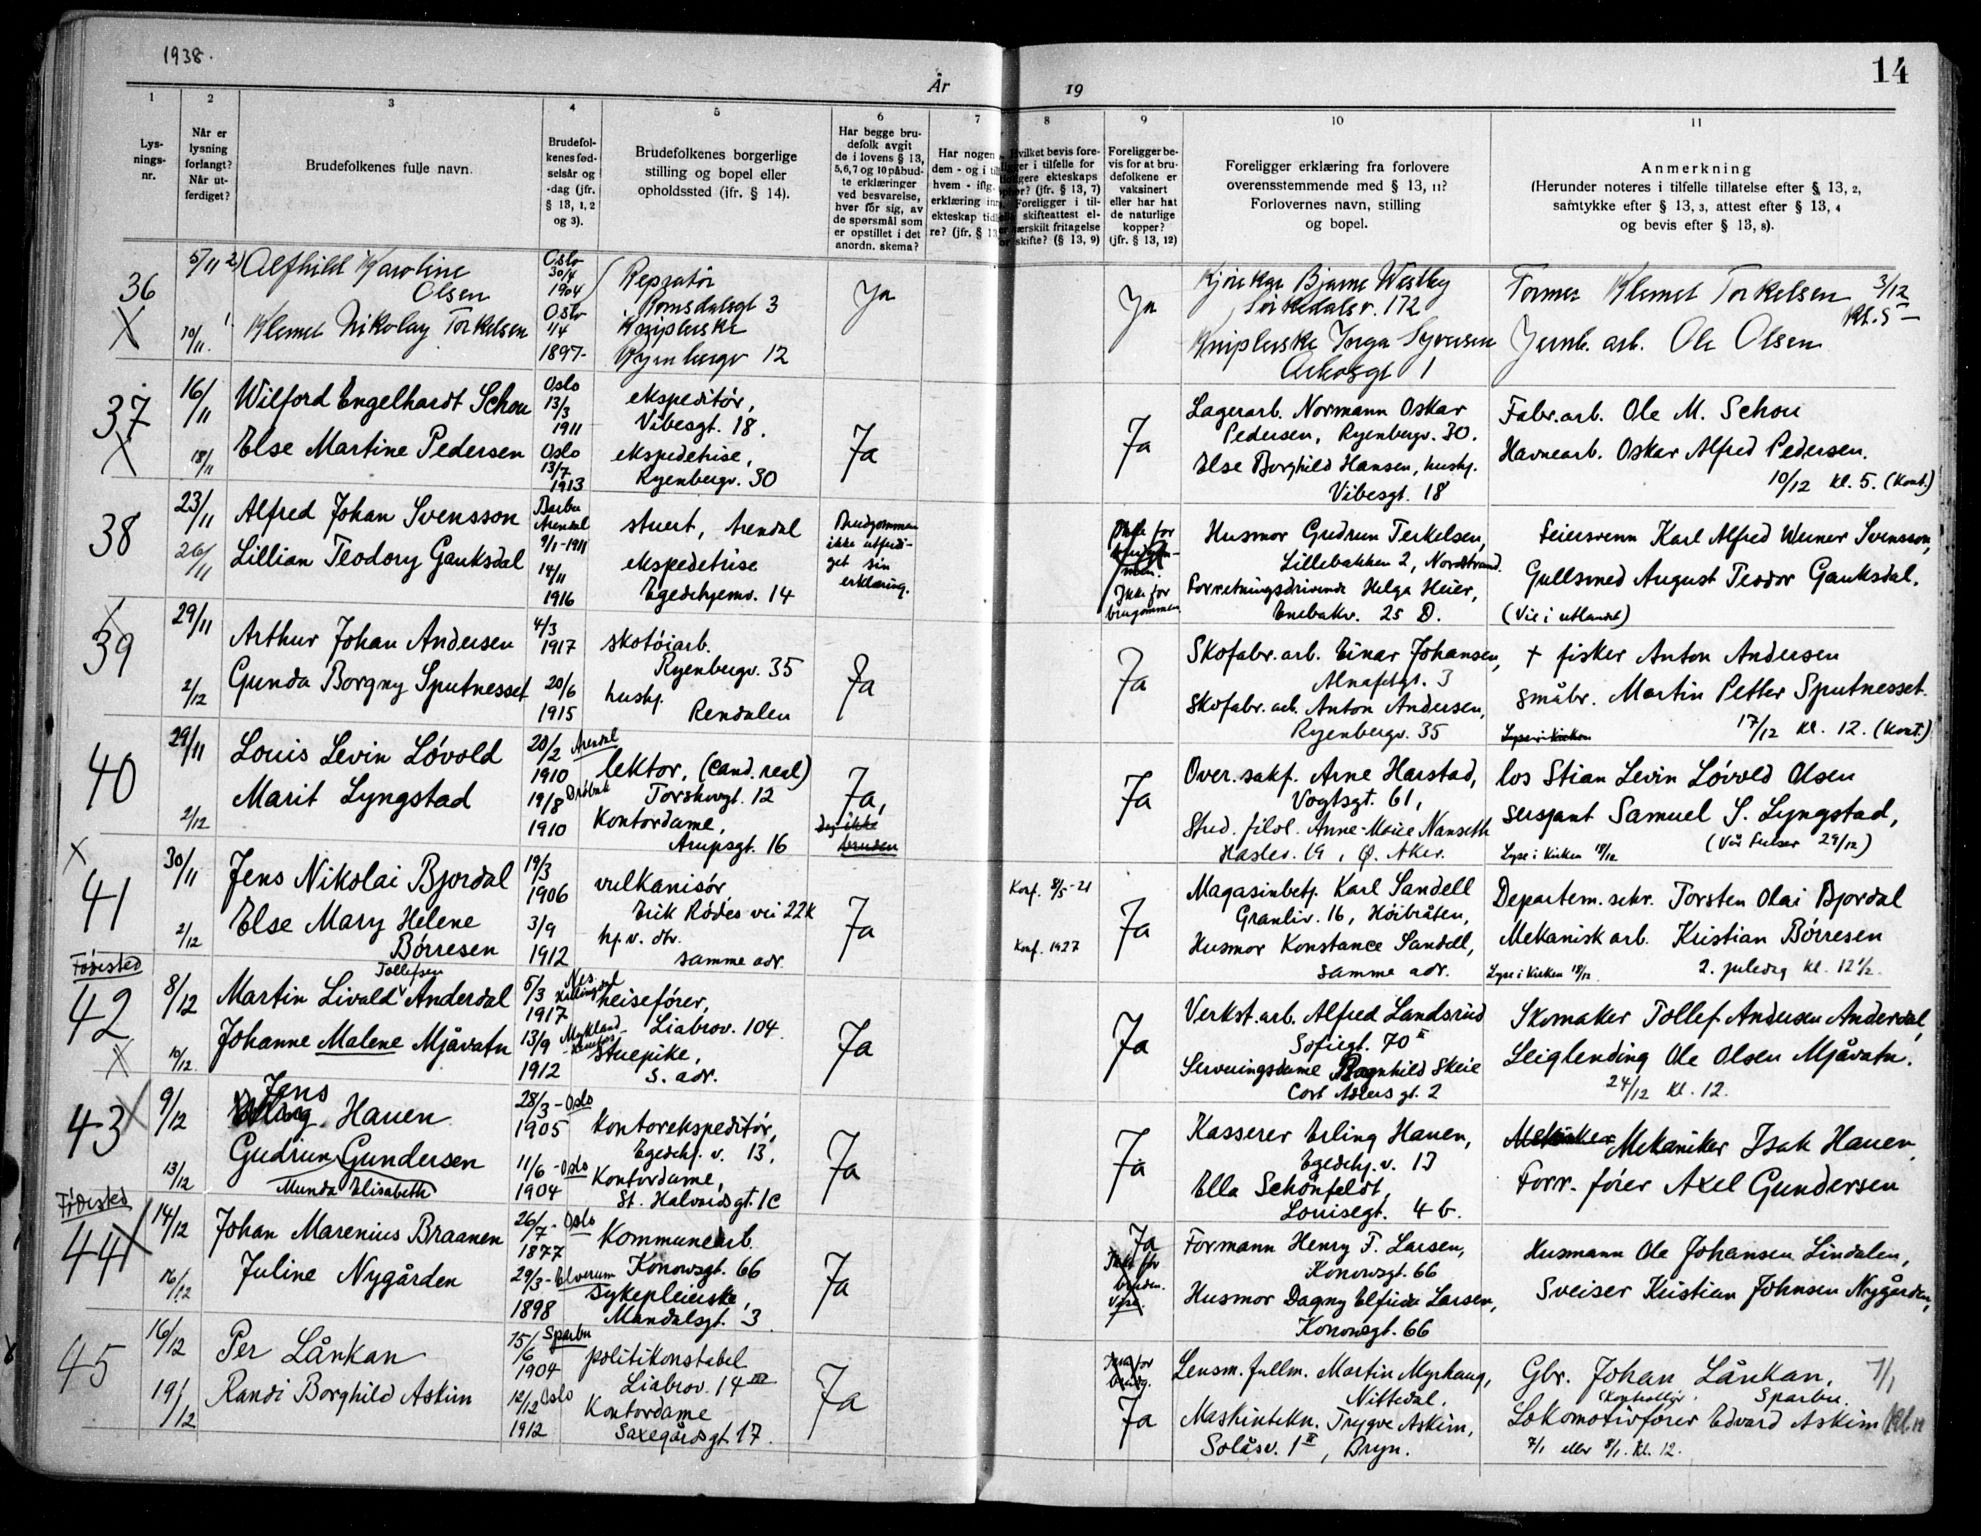 1938.
14
År 19
1
2
3
4
5
6
7
8
9
10
11
Lys-
nings-
nr.
Når er
lysning
forlangt?
Når ut-
ferdiget?
Brudefolkenes fulle navn.
Brudefol-
kenes fød-
selsår og
-dag (jfr.
§ 13, 1, 2
og 3).
Brudefolkenes borgerlige
stilling og bopel eller
opholdssted (ifr. § 14).
Har begge bru-
defolk avgit
de i lovens § 13,
5, 6, 7 og 10 påbud-
te erklæringer
ved besvarelse,
hver for sig, av
de spørsmål som
er opstillet i det
anordn. skema?
Har nogen
dem - og i
hvem - iflg.
erklæring
ekteskap
re? (jfr. §
Hvilket bevis fore-
i tilfelle for
ekteskaps
(jfr. § 13, 7)
Foreligger i til-
skifteattest el-
særskilt fritagelse
skifte? (§ 13, 9)
Foreligger be-
vis for at bru-
defolkene er
vaksinert
eller har hat
de naturlige
kopper?
(jfr. § 13, 12)
Foreligger erklæring fra forlovere
overensstemmende med § 13, 11?
Forlovernes navn, stilling
og bopel.
Anmerkning
(Herunder noteres i tilfelle tillatelse efter § 13, 2,
samtykke efter § 13, 3, attest efter § 13, 4
og bevis efter § 13, 8).
36
5/11 2) Alfhild Karoline
Olsen
10/11. 1 Klemet Nikolay Torkelsen
Oslo
30/4
1904
Oslo
1/4
1897-
Romsdalsgt 3
Kniplerske
12
Ja
Ja
Bjarne Westby
Sørkedalsv. 172
Kniplerske Inga Syversen
1
Former Klemet Torkelsen 3/12
Kl. 5
Jernb. arb. Ole Olsen
37
16/11
18/11
Wilford Engelhardt Schou
Else Martine Pedersen
Oslo
13/3
1911
Oslo
13/7
1913
ekspeditør,
Vibesgt. 18.
ekspedetrise,
Ryenbergv. 30
Ja
Ja
Lagerarb. Normann Oskar
Pedersen, Ryenbergv. 30.
Else Borghild Hansen, hushj.
Vibesgt. 18
Fabr. arb. Ole M. Schou
Havnearb. Oskar Alfred Pedersen.
10/12 kl. 5. (Kont.)
38
23/11
26/11
Alfred Johan Svensson
Lillian Teodory Gauksdal
Barbu
Arendal
9/1-1911
14/11
1916
stuert, Arendal
ekspedetrise
Egedehjemv. 14
Brudgommen
ikke utferdi-
get sin
erklæring.
Ikke for
brugommen
Husmor Gudrun Terkelsen,
Lillebakken 2, Nordstrand.
Forretningsdrivende Helga Heier,
Enebakv. 25 D.
Feiersvenn Karl Alfred Werner Svensson,
Gullsmed August Teodor Gauksdal.
(Vie i utlandet)
39
29/11
2/12
Arthur Johan Andersen
Gunda Borgny Sputnesset
4/3
1917
20/6
1915
skotøiarb.
Ryenbergv. 35
hushj.
Rendalen
Ja
Ja
Skofabr. arb. Einar Johansen,
Alnafetgt. 3
Skofabr. arb. Anton Andersen,
Ryenbergv. 35
+ fisker Anton Andersen
småbr. Martin Petter Sputnesset.
17/12 kl. 12. (Kont.)
Lyse i kirken
40
29/11
2/12
Louis Levin Løvold
Marit Lyngstad
20/2 Arendal
1910
19/8 Drøbak
1910
lektor, (cand. real)
Torshovgt. 12
Kontordame,
Arupsgt. 16
Ja,
dog ikke
bruden
Ja
Over. sakf. Arne Harstad,
Vogtsgt. 61,
Stud. filol. Anne-Marie Nanseth
Haslev. 19, Ø. Aker.
los Stian Levin Løvold Olsen
sersjant Samuel S. Lyngstad,
Lyse i kirken 18/12
(Vår Frelser 29/12)
41
30/11
2/12
Jens Nikolai Bjordal
Else Mary Helene
Børresen
19/3
1906
3/9
1912
vulkanisør
Erik Rødes vei 22K
hj. v. dtr.
samme adr.
Ja
Konf. 8/5-21
Konf. 1927
Ja
Magasinbetj. Karl Sandell
Granliv. 16, Høibråten,
Husmor Konstance Sandell,
samme adr.
Departem. sekr. Torsten Olai Bjordal
Mekanisk arb. Kristian Børresen
Lyse i kirken 18/12. 2. juledag kl. 12½.
Fødested
42
8/12
10/12.
Tollefsen
Martin Livald Anderdal
Johanne Malene Mjåvatn
5/3 Nes
Hallingdal
1917
13/9 Mykland
1912
heisefører,
Liabrov. 104.
stuepike,
s. adr.
Ja
Ja
Verkst. arb. Alfred Landsrud
Sofiegt. 70 II
Serveringsdame Ragnhild Skeie
Cort Adlers gt. 2
Skomaker Tollef Andersen Anderdal,
Leiglending Ole Olsen Mjåvatn.
24/12 kl. 12.
43
9/12
13/12
Jens
Hauen
Gudrun Gundersen
Munda Elisabeth
28/3 - Oslo
1905
11/6 - Oslo
1904
kontorekspeditør,
Egedehj. v. 13.
Kontordame,
St. Halvardsgt. 1c
Ja
Ja
Kasserer Erling Hauen,
Egedehj. v. 13
Ella Schønfeldt,
Louisegt. 4 b.
Mekaniker Isak Hauen,
Forr. fører Axel Gundersen
Fødested
44
14/12
16/12
Johan Marenius Braanen
Juline Nygården
26/7 - Oslo
1877
29/3 - Elverum
1898
Kommunearb.
Konowsgt. 66
sykepleierske,
Mandalsgt. 3
Ja
Ja
Ikke for
bruden.
Formann Henry F. Larsen,
Konowsgt. 66
Husmor Dagny Elfrida Larsen,
Konowsgt. 66
Husmann Ole Johansen Lindalen,
Sveiser Kristian Johnsen Nygården,
45
16/12
19/12
Per Lånkan
Randi Borghild Askim
15/6 Sparbu
1904
12/12 Oslo
1912
politikonstabel
Liabrov. 14 III
Kontordame
Saxegårdsgt 17.
Ja
Ja
Lensm. fullm. Martin Myrhaug,
Nittedal.
Maskintekn. Trygve Askim,
Solåsv. 1 II, Bryn.
Gbr. Johan Lånkan, 7/1
(Kontrollør. Sparbu.
Lokomotivfører Edvard Askim Kl. 12
7/1 eller 8/1. kl. 12.